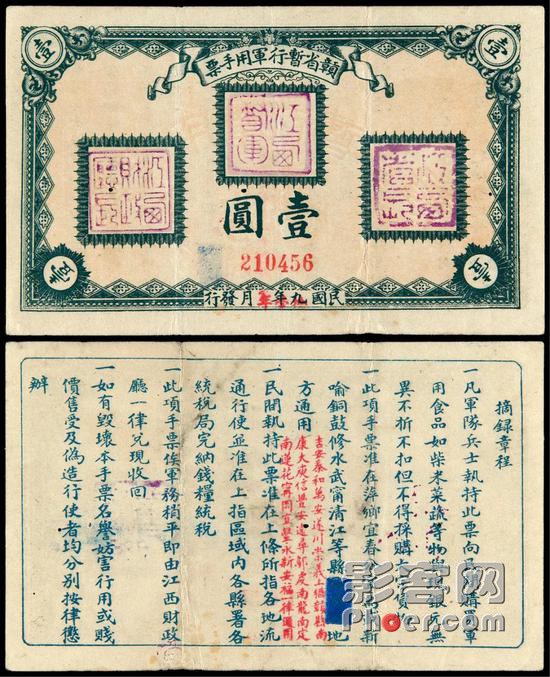 壹
壹
贛省暫行軍用手票
壹圓
210456
壹
壹
民國九年 月發行
摘錄章程
一凡軍隊兵士執持此票向 購買軍
用食品如柴米菜蔬等物 銀 無
異不折不扣但不得採購大 貨
一此項手票准在萍鄉宜春 萬 新
喻銅鼓修水武甯清江等縣 地
方通用
吉安泰和萬安遂川崇義上猶贛縣南
康大庾信豐安遠尋鄔虔南龍南定
南蓮花甯岡宜豐永新安福一律通用
一民間執持此票准在上條所指各地流
通行使並准在上指區域內各縣署各
統稅局完納錢糧統稅
一此項手票俟軍務稍平即由江西財政
廳一律兌現收回
一如有毀壞本手票名譽妨害行用或賤
價售受及偽造行使者均分別按律懲
辦
影客网
Phoer.com